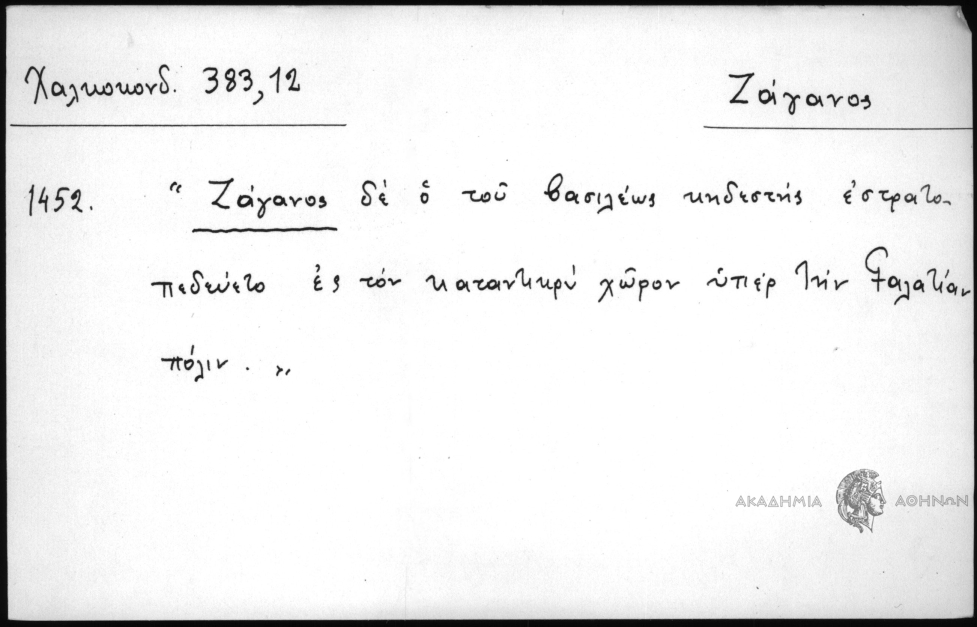 Χαλκοκονδ. 383,12
Ζάγανος
1452. “ Ζάγανος δέ ὁ τοῦ βασιλέως κηδεστής ἐστρατο-
πεδεύετο ἐς τόν καταντικρύ χῶρον ὑπέρ τήν Γαλατίαν
πόλιν . ”
ΑΚΑΔΗΜΙΑ ΑΘΗΝΩΝ